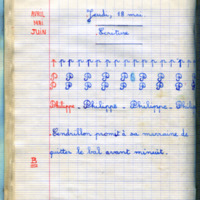 AVRIL
MAI
JUIN
Jeudi, 18 mai.
Ecriture
Philippe - Philippe - Philippe - Phili
Cendrillon promet à sa marraine de
quitter le bal avant minuit.
B